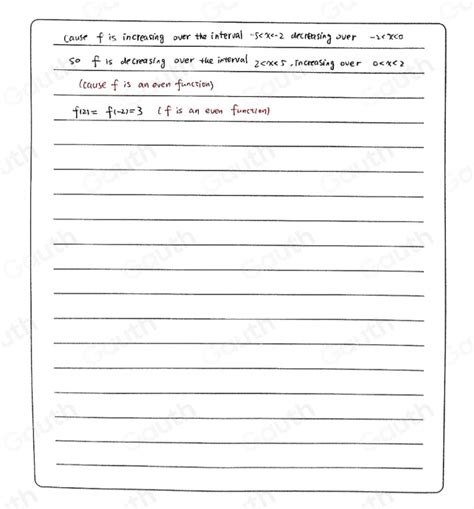 Cause f is increasing over the interval -5<x<-2 decreasing over -2<x<0
So f is decreasing over the interval 2<x<5, increasing over 0<x<2
(Cause f is an even function)
f(2)= f(-2)=3 (f is an even function)
Gauth